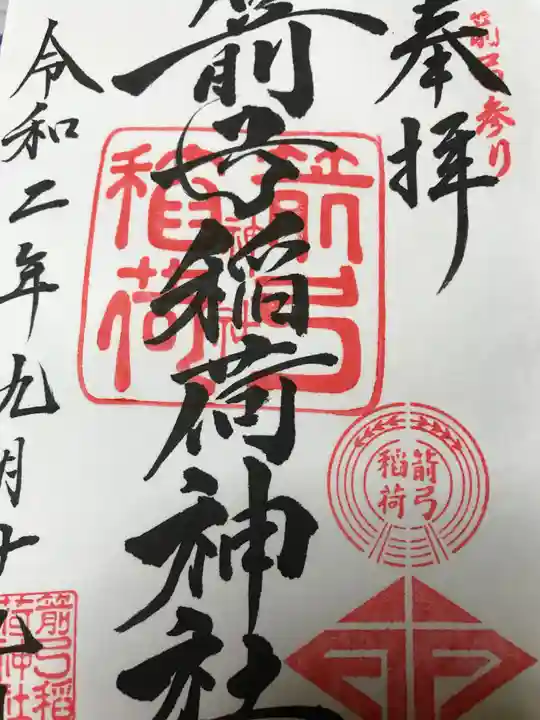 箭弓参り
奉拝
箭弓稲荷神社
箭弓
稲荷
神社
箭弓
稲荷
令和二年九月十九日
箭弓稲
荷神社